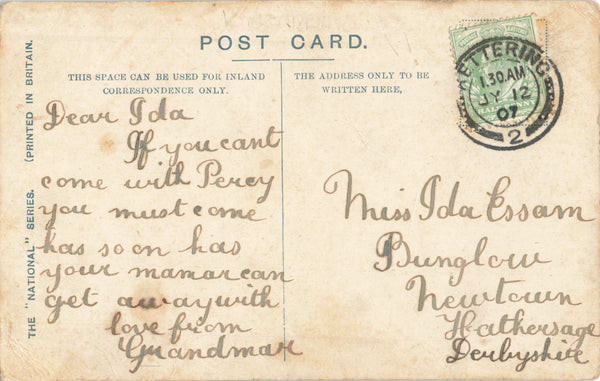 POST CARD.
THIS SPACE CAN BE USED FOR INLAND
CORRESPONDENCE ONLY.
THE ADDRESS ONLY TO BE
WRITTEN HERE,
THE "NATIONAL" SERIES. (PRINTED IN BRITAIN.
KETTERING
1.30 AM
JY 12
07
2
Dear Ida
If you cant
come with Percy
you must come
has soon has
your mamar can
get away with
love from
Grandmar
Miss Ida Essam
Bunglow
Newtown
Hathersage
Derbyshire